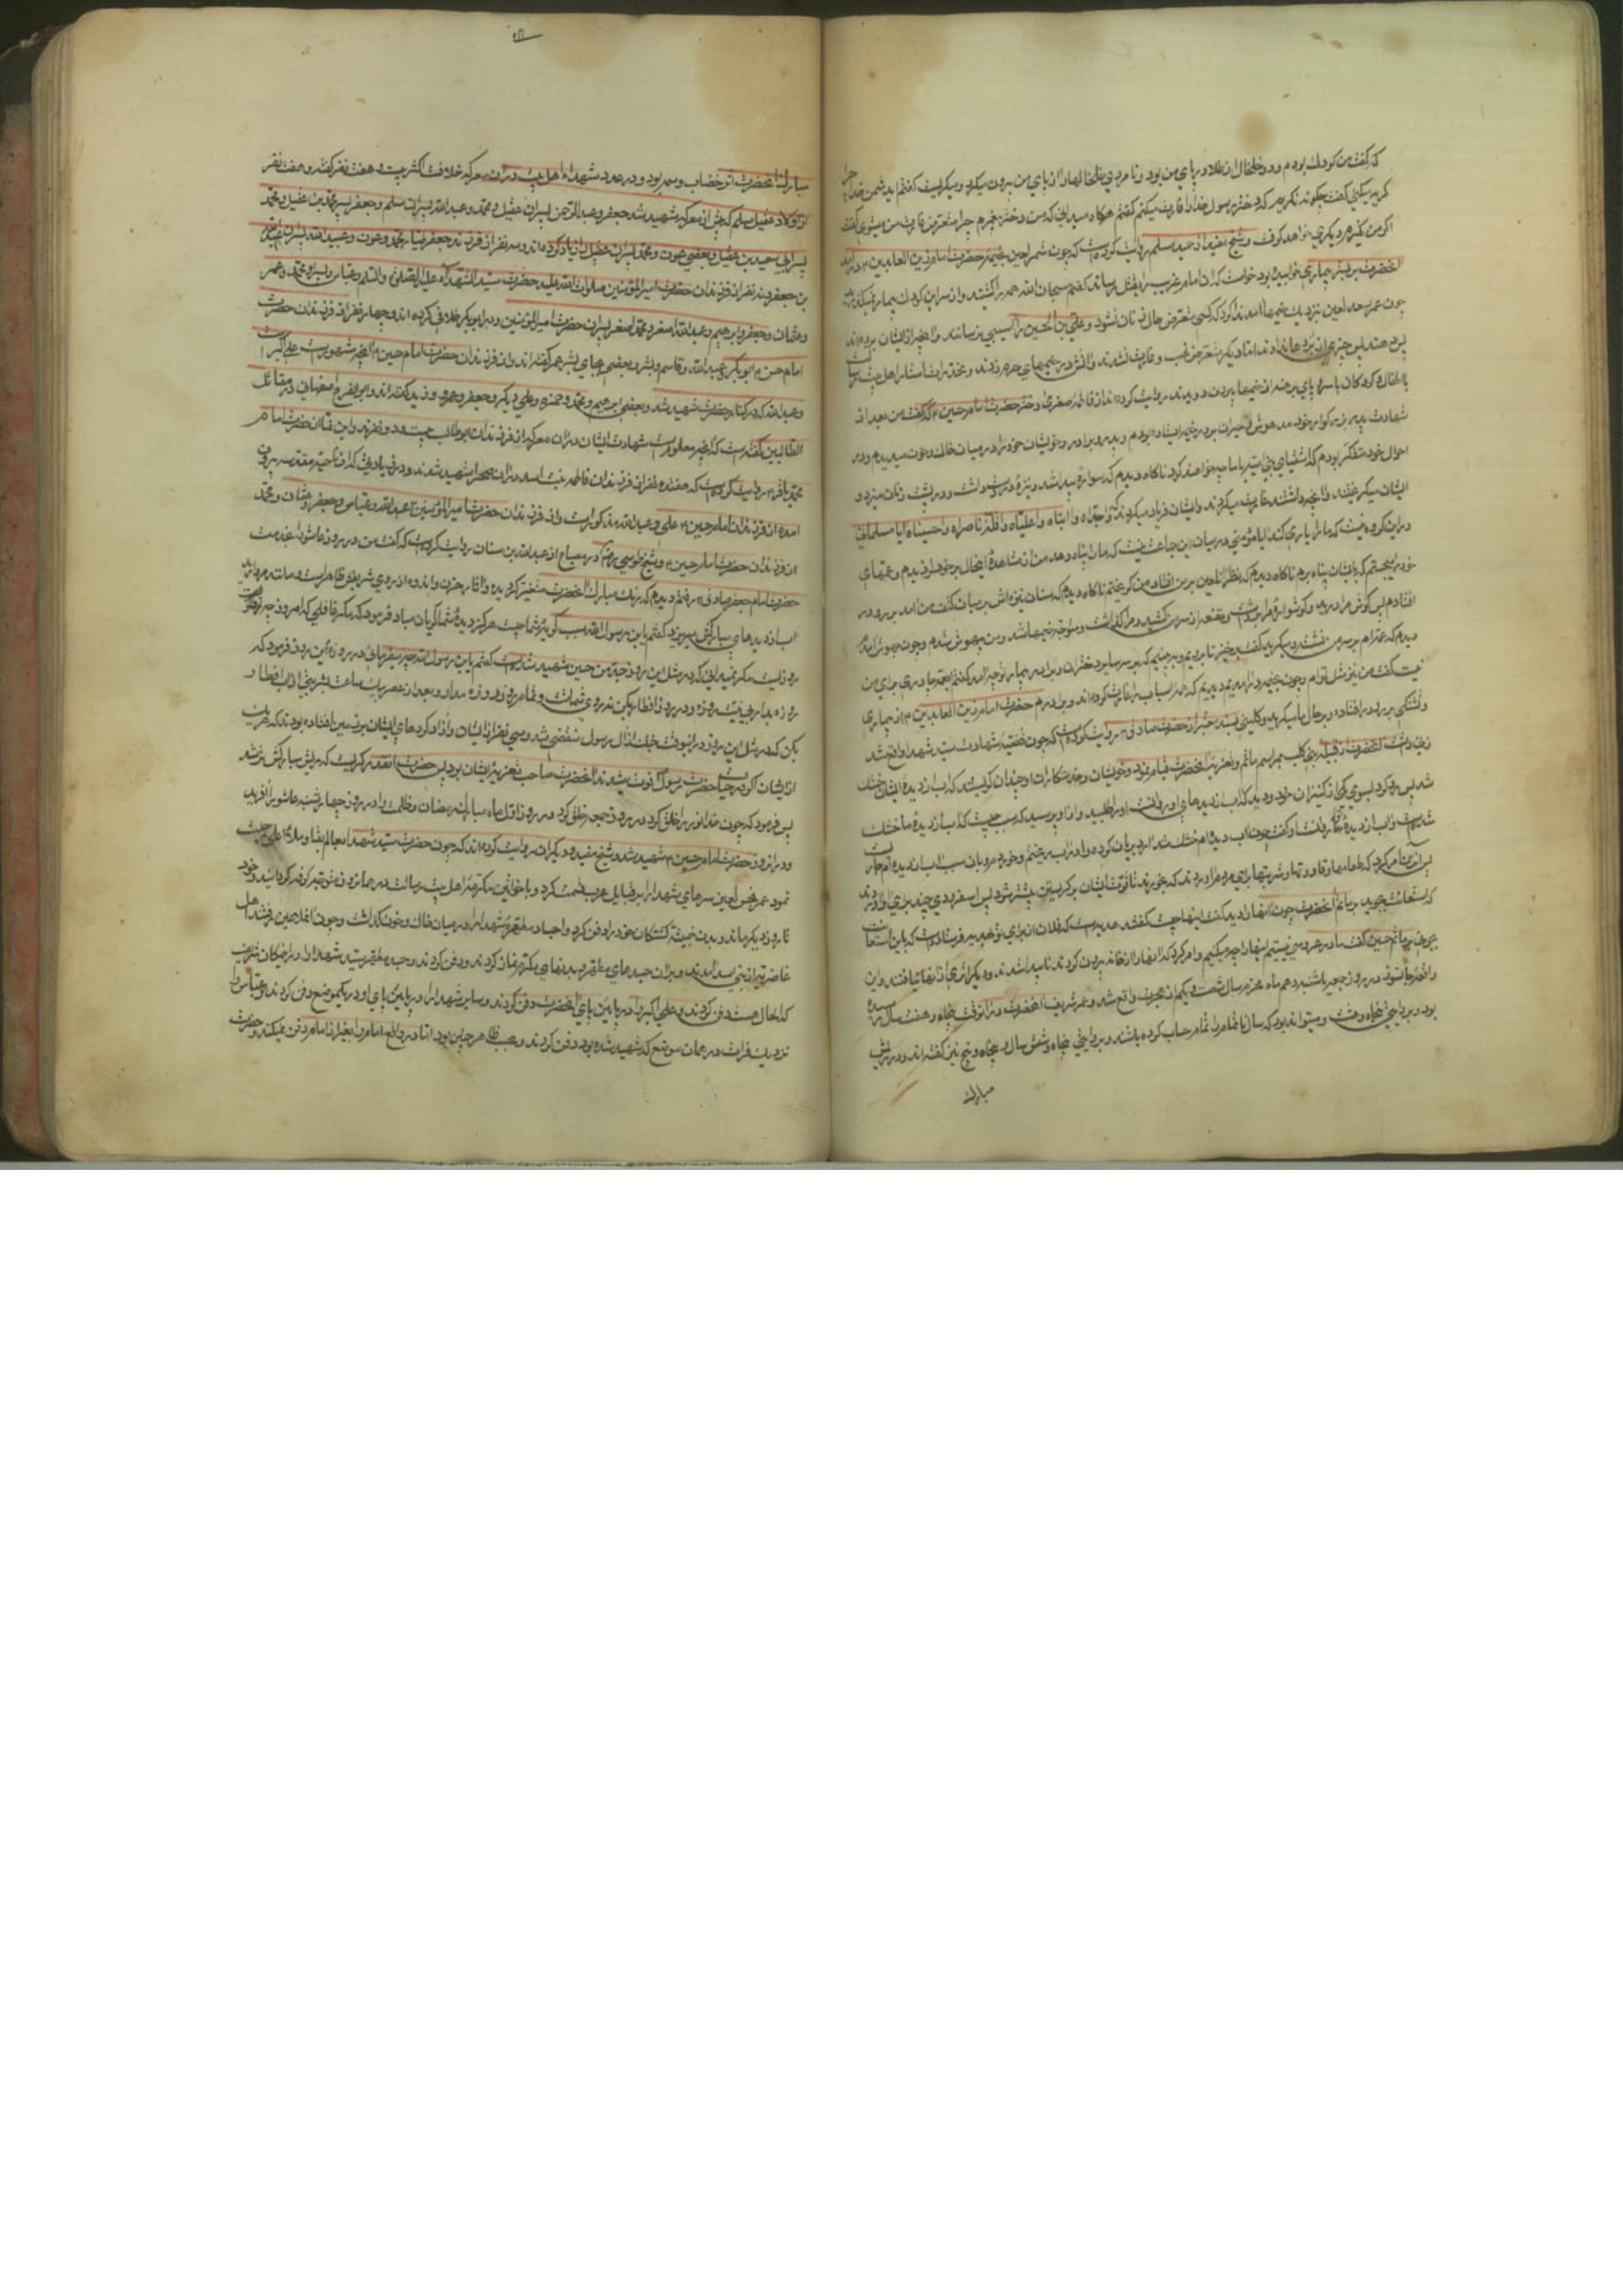 که گفت من کودک بودم و دو خلخال از طلا در پای من بود و نامردی خلخالها را از پای من بیرون میکرد و میگریست گفتم ای دشمن خدا چرا
گریه میکنی گفت چگونه نگریم که دختر رسول خدا را غارت میکنم گفتم هرگاه میدانی که من دختر پیغمبرم چرا متعرض غارت من میشوی گفت
اگر من نگیرم دیگری خواهد گرفت و شیخ مفید از حمید بن مسلم روایت کرده است که چون شمر لعین بخیمه حضرت امام زین العابدین ع درآمد
آنحضرت بر بستر بیماری خوابیده بود خواست که آن امام غریب را بقتل رساند گفتم سبحان الله همه را کشتند و از سر این کودک بیمار نمیگذرند
چون عمر سعد لعین بنزدیک خیمها آمد ندا کرد که کسی متعرض حال زنان نشود و علی بن الحسین را آسیبی نرسانند و آنچه از ایشان برده‌اند
پس دهند پس چیزی از برده‌ها ندادند اما دیگر متعرض نهب و غارت نشدند و آتش در خیمهای حرم زدند و مخدرات استار اهل بیت رسالت
با اطفال و کودکان با سر و پای برهنه از خیمها بیرون دویدند روایت کرده‌اند از فاطمه صغری دختر حضرت امام حسین ع که گفت من بعد از
شهادت پدر بزرگوار خود مدهوش و حیران بر در خیمه ایستاده بودم و پدر و برادر و خویشان خود را در میان خاک و خون میدیدم و در
احوال خود متفکر بودم که اشقیای بنی امیه با ما چه خواهند کرد ناگاه دیدم که سواره پیدا شد و نیزه در دست داشت و بر پشت زنان میزد و
ایشان میگریختند و آنچه داشتند غارت میکردند و ایشان فریاد میکردند که واجداه وا ابتاه واعلیاه واقلة ناصراه واحسیناه آیا مسلمانی
در این گروه نیست که ما را یاری کند آیا مؤمنی در میان این جماعت نیست که ما را پناه دهد من از مشاهده اینحال بر خود لرزیدم و عمهای
خود را میجستم که بایشان پناه برم ناگاه دیدم که نظر آن لعین بر من افتاد من گریختم ناگاه دیدم که سنان نیزه اش بر میان کتف من آمد بر رو در
افتادم پس گوش مرا درید و گوشواره مرا برداشت و مقنعه از سر من کشید و مرا گذاشت و متوجه خیمها شد و من بیهوش شدم و چون بهوش آمدم
دیدم که عمه‌ام بر سر من نشسته و میگرید گفت برخیز تا برویم و ببینیم که بر سر سایر دختران و برادر بیمار تو چه آمد گفتم ای عمه چادری برای من
نیست گفت من نیز مثل توام و چون بخیمه در آمدیم دیدیم که همه اسباب را غارت کرده‌اند و برادرم حضرت امام زین العابدین ع از بیماری
و تشنگی بر رو در افتاده و بر حال ما میگرید و کلینی بسند معتبر از حضرت صادق ع روایت کرده است که چون قضیه شهادت سید شهدا واقع شد
زنی داشت آنحضرت از قبیله بنی کلب بمراسم ماتم و تعزیه آنحضرت قیام نمود و خویشان و خدمتکاران او چندان گریستند که آب از دیده ایشان خشک
شد پس رو کرد بسوی یکی از کنیزان خود و دید که آب از دیدهای او روانست او را طلبید و از او پرسید که سبب چیست که آب از دیده ما خشک
شده است و آب از دیده تو روانست او گفت چون آب دیده‌ام خشک شد آرد بریان کرده و در آب ریختم و خوردم و بآن سبب آب از دیده‌ام جاریست
پس آن زن امر کرد که طعامها و قاووتها و شربتها برای مردم آوردند که بخورند تا قوت ایشان بر گریستن بیشتر شود پس اسفرودی چند برای او آوردند
که استعانت بجوید بر ماتم آنحضرت چون آنها را دید گفت اینها چیست گفتند هدیه ایست که فلان از برای تو هدیه فرستاده است که باین استعانت
بجوئی بر ماتم حسین گفت ما در عروسی نیستیم اینها را چه میکنیم و امر کرد که آنها را از خانه بیرون کردند ناپیدا شدند و دیگر اثری از آنها نیافتند و این
واقعه جانسوز در روز جمعه یا شنبه دهم ماه محرم سال شصت و یکم از هجرت واقع شد و عمر شریف آنحضرت در آنوقت پنجاه و هفت سال رسیده
بود و بروایتی پنجاه و هشت و میتواند بود که سال ناتمام را تمام حساب کرده باشند و بروایتی پنجاه و شش سال و پنجاه و پنج نیز گفته‌اند و در ریش
مبارک
مبارک آنحضرت اثر خضاب وسمه بود و در عدد شهدای اهل بیت در آن معرکه خلافست اکثر بیست و هفت نفر گفته‌اند و هفت نفر
از اولاد عقیل مسلم که پیش از معرکه شهید شد و جعفر و عبد الرحمن پسران عقیل و محمد و عبد الله پسران مسلم و جعفر پسر محمد بن عقیل و محمد
پسر ابی سعید بن عقیل و بعضی عون و محمد پسران عقیل را زیاد کرده‌اند و سه نفر از فرزندان جعفر طیار محمد و عون و عبید الله پسران عبد الله
بن جعفر و نه نفر از فرزندان حضرت امیر المؤمنین صلوات الله علیه حضرت سید الشهداء علیه الصلوة والسلام و عباس و پسر او محمد و عمر
و عثمان و جعفر و ابرهیم و عبد الله اصغر و محمد اصغر پسران حضرت امیر المؤمنین و در ابو بکر خلافی کرده‌اند و چهار نفر از فرزندان حضرت
امام حسن ع ابو بکر و عبد الله و قاسم و بشر و بعضی بجای بشر عمر گفته‌اند و از فرزندان حضرت امام حسین ع آنچه مشهور است علی اکبر است
و عبد الله که در کنار حضرت شهید شد و بعضی ابرهیم و محمد و حمزه و علی دیگر و جعفر و عمر و زید گفته‌اند و ابو الفرج اصفهانی در مقاتل
الطالبین گفته است که آنچه معلوم است شهادت ایشان در آن معرکه از فرزندان ابو طالب بیست و دو نفرند و ابن نما از حضرت امام
محمد باقر ع روایت کرده است که هفده نفر از فرزندان فاطمه بنت اسد در آن صحرا شهید شدند و در زیارتی که از ناحیه مقدسه بیرون
آمده از فرزندان امام حسین ع علی و عبد الله مذکور است و از فرزندان حضرت امیر المؤمنین ع عبد الله و عباس و جعفر و عثمان و محمد
از فرزندان حضرت امام حسین ع و شیخ طوسی رضی در مصباح از عبد الله بن سنان روایت کرده است که گفت من در روز عاشورا بخدمت
حضرت امام جعفر صادق ع رفتم دیدم که رنگ مبارک آنحضرت متغیر گردیده و آثار حزن و اندوه از روی شریفش ظاهر است و مانند مروارید
آب از دیدهای مبارکش میریزد گفتم یابن رسول الله سبب گریه شما چیست هرگز دیده شما گریان مباد فرمود که مگر غافلی که امروز چه روز است
مگر نمیدانی که در مثل این روز جد من حسین شهید شده است گفتم یابن رسول الله چه میفرمائی در روزه این روز فرمود که
روزه بدار بی نیت روزه و در روز افطار بکن نه از روی شماتت و تمام روز را روزه مدار و بعد از عصر بیک ساعت بشربتی از آب افطار
بکن که در مثل این روز در اینوقت جنگ از آل رسول منقضی شد و سی نفر از ایشان و آزاد کردهای ایشان بر زمین افتاده بودند که هر یک
از ایشان اگر در حیات حضرت رسول ص فوت میشدند آنحضرت صاحب تعزیه ایشان بود پس حضرت آنقدر گریست که ریش مبارکش تر شد
پس فرمود که چون خدا نور را خلق کرد در روز جمعه خلق کرد در روز اول ماه مبارک رمضان و ظلمت را در روز چهارشنبه عاشورا آفرید
و در آنروز حضرت امام حسین ع شهید شد و شیخ مفید و دیگران روایت کرده‌اند که چون حضرت سید شهدا بعالم بقا رحلت
نمود عمر نحس لعین سرهای شهدا را بر قبایل عرب قسمت کرد و با خواتین مکرمه اهل بیت رسالت در همان روز متوجه کوفه گردانید و خود
تا روز دیگر ماند و بدن خبیثه کشتگان خود را دفن کرد و اجساد مطهره شهدا را در میان خاک و خون گذاشت و چون آن لعین رفتند اهل
غاضریه از بنی اسد آمدند و بر آن جسدهای مطهر و بدنهای مکرم نماز کردند و دفن کردند و جسد مطهر سید شهدا را در آنمکان شریف
که الحال هست دفن کردند و علی اکبر را در پایین پای آنحضرت دفن کردند و سایر شهدا را در پایین پای او در یکموضع دفن کردند و عباس را
نزدیک فرات در همان موضع که شهید شده بود دفن کردند و بحسب ظاهر چنین بود اما در واقع امام را بغیر از امام دفن نمیکند و حضرت